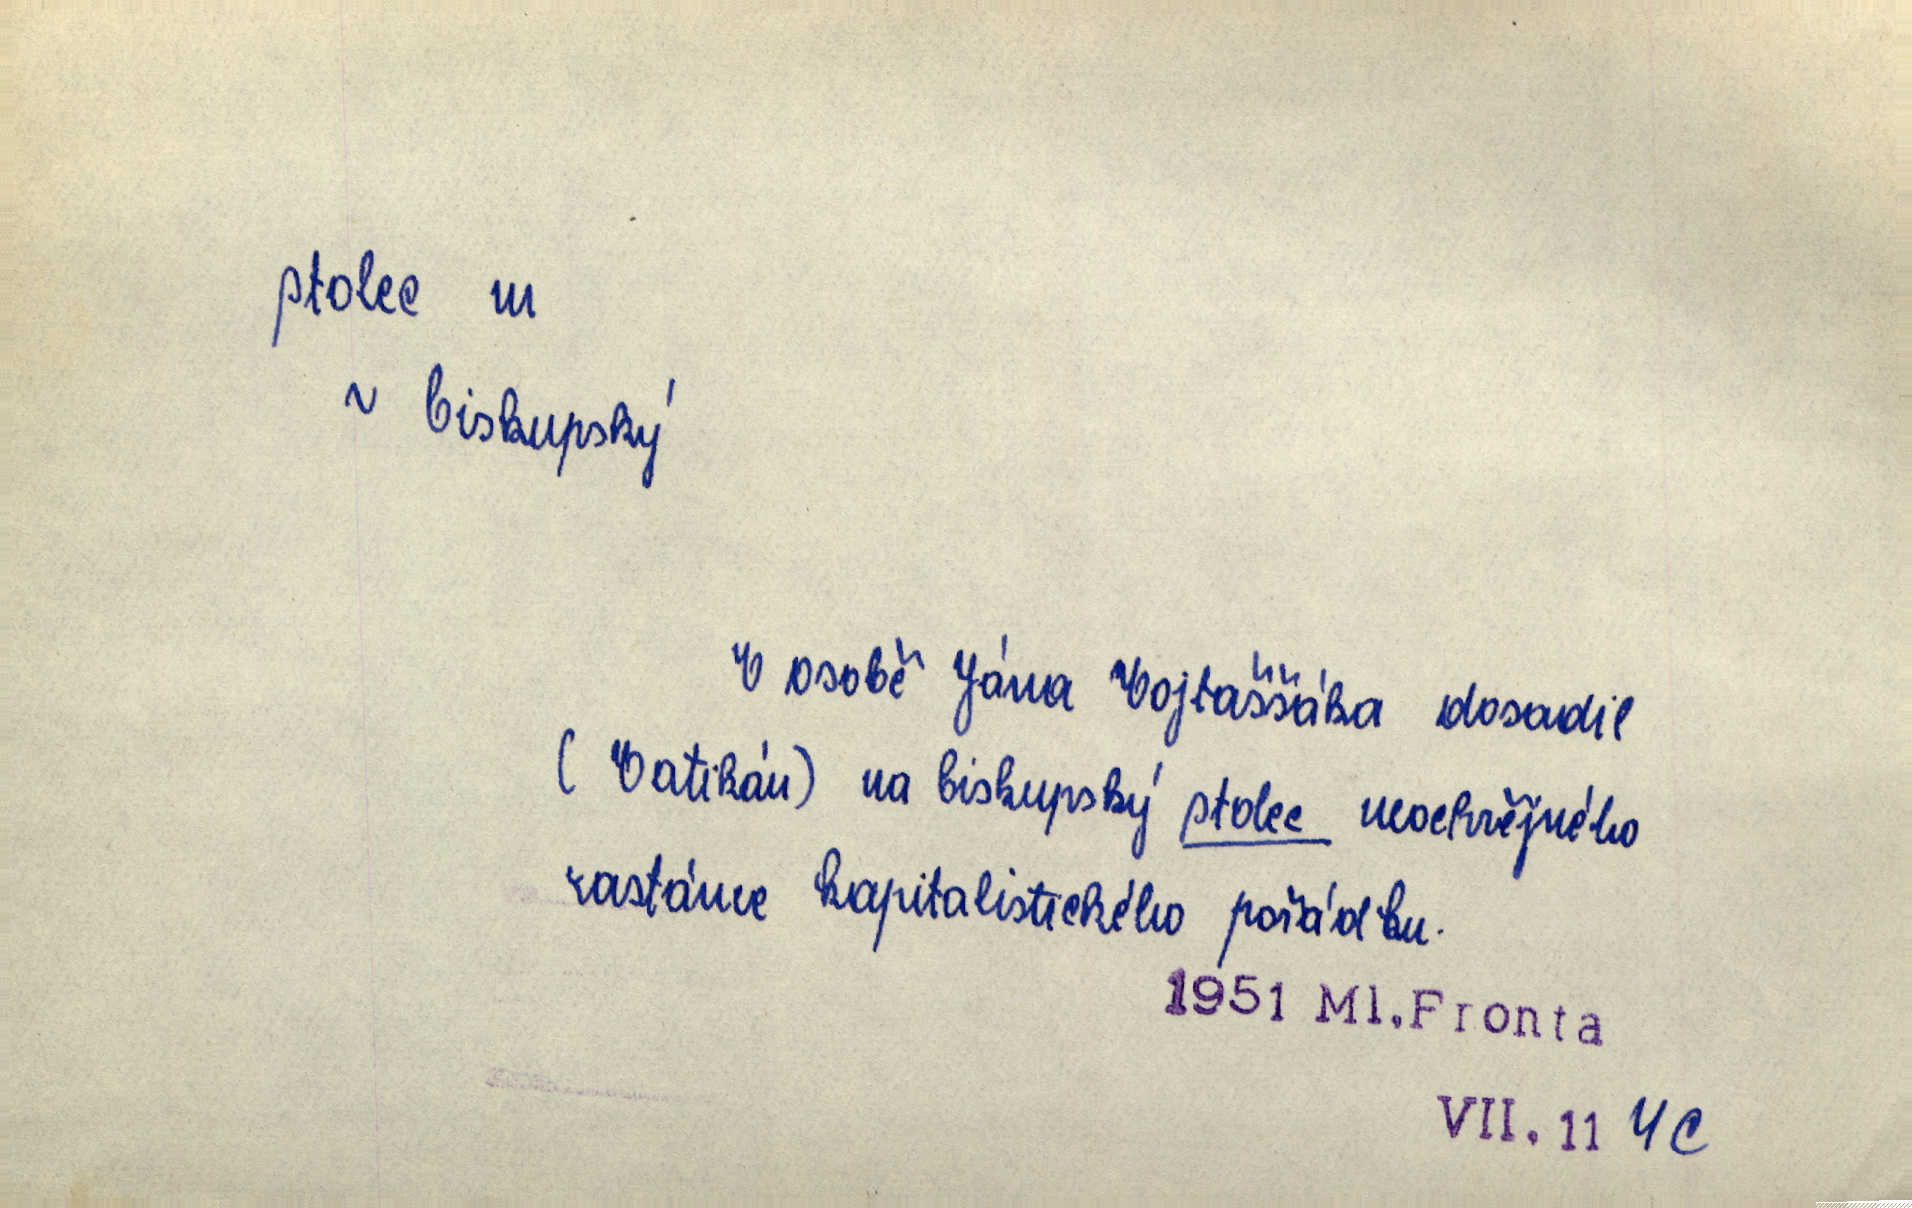 stolec m
~ biskupský
V osobě Jána Vojtaššáka dosadil
(Vatikán) na biskupský stolec neochvějného
zastánce kapitalistického pořádku.
1951 Ml.Fronta
VII. 11 4c